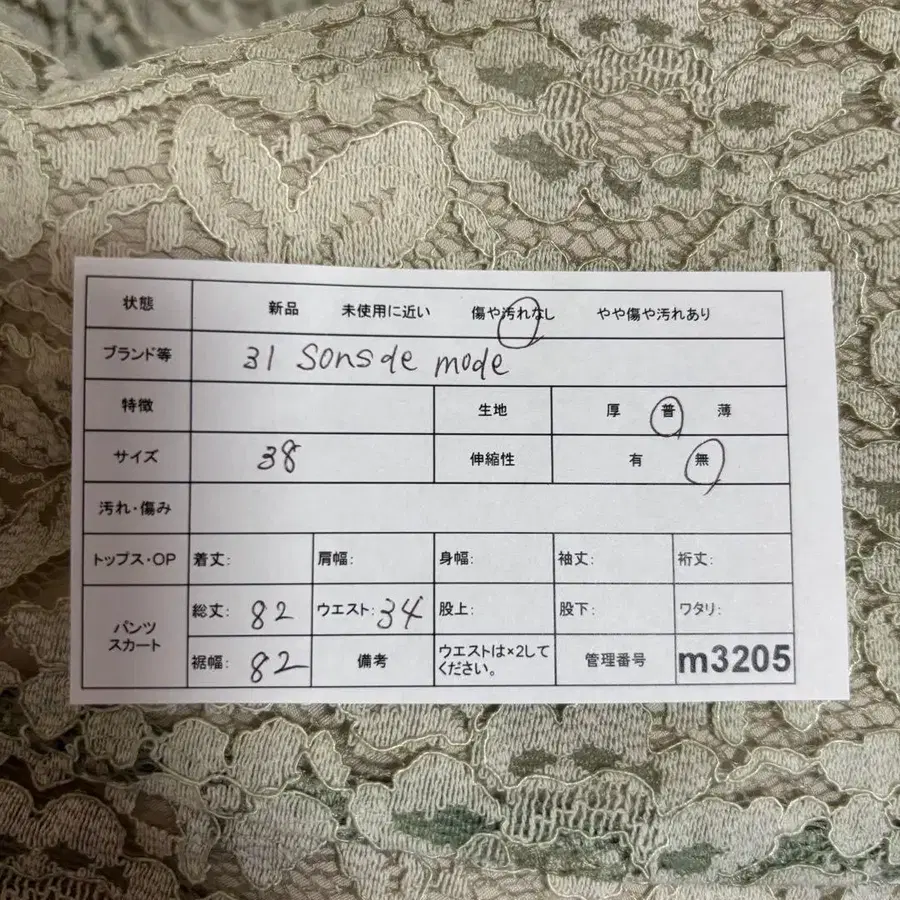 状態 新品 未使用に近い 傷や汚れなし やや傷や汚れあり
ブランド等 31 Sons de mode
特徴 生地 厚 普 薄
サイズ 38 伸縮性 有 無
汚れ・傷み
トップス・OP 着丈: 肩幅: 身幅: 袖丈: 裄丈:
パンツ
スカート
総丈: 82 ウエスト: 34 股上: 股下: ワタリ:
裾幅: 82 備考 ウエストは×2して
ください。 管理番号 m3205